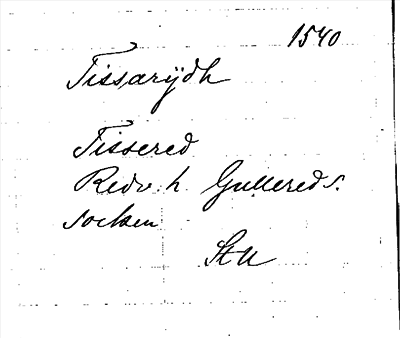 1540
Tissarÿdh
Tissered
Redv. h. Gullereds.
socken
StU